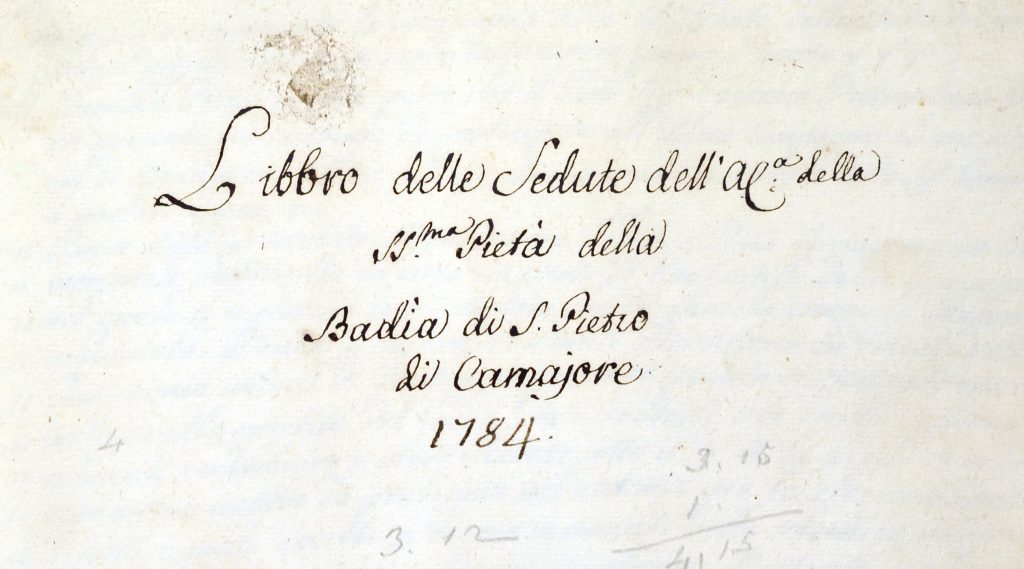 Libbro delle Sedute dell'
della
SS.ma Pietà della
Badìa di S. Pietro
di Camajore
1784.
4
3. 15
3. 12
1
4 15